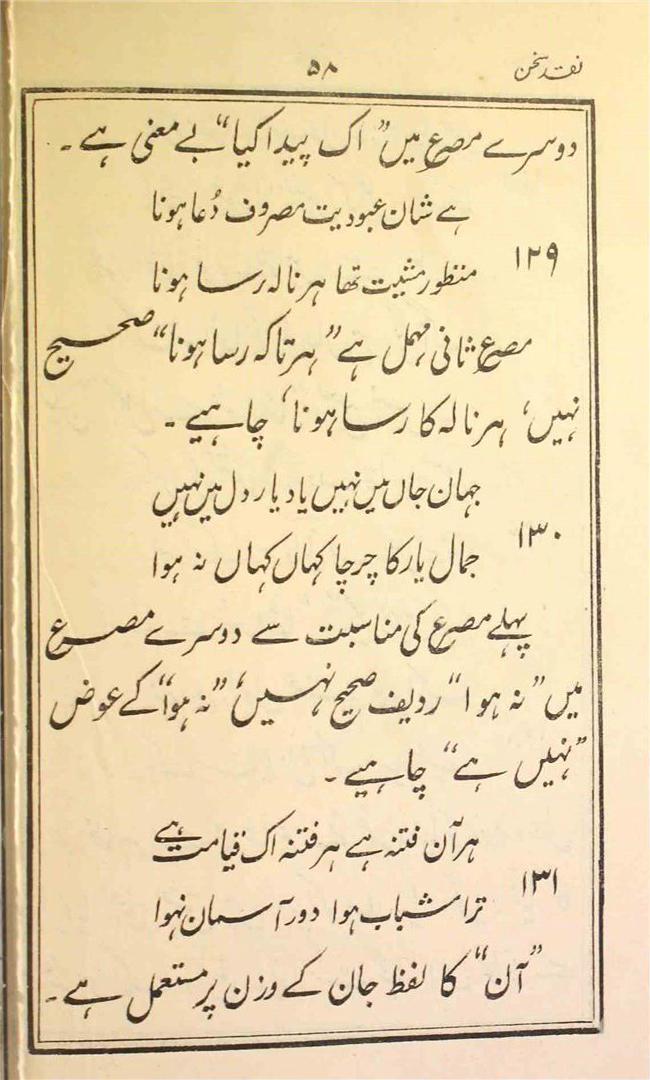 نقد سخن
۵۸
دوسرے مصرع میں ”اک پیدا کیا“ بے معنی ہے۔
ہے شان عبودیت مصروف دُعا ہونا
۱۲۹
منظور مشیت تھا ہر نالہ رسا ہونا
مصرع ثانی مہمل ہے ”ہر تا کہ رسا ہونا“ صحیح
نہیں، ہر نالہ کا رسا ہونا، چاہیے۔
جہان جاں میں نہیں یاد یار دل میں نہیں
۱۳۰
جمال یار کا چرچا کہاں کہاں نہ ہوا
پہلے مصرع کی مناسبت سے دوسرے مصرع
میں ”نہ ہوا“ ردیف صحیح نہیں، ”نہ ہوا“ کے عوض
”نہیں ہے“ چاہیے۔
ہر آن فتنہ ہے ہر فتنہ اک قیامت ہے
۱۳۱
ترا شباب ہوا دور آسمان نہوا
”آن“ کا لفظ جان کے وزن پر مستعمل ہے۔